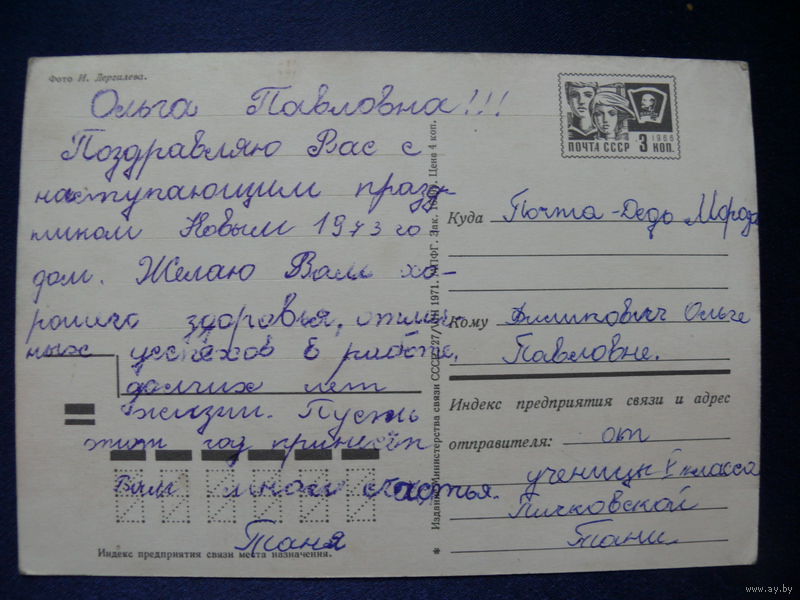 Фото И. Дергалева.
Ольга Павловна!!!
Поздравляю Вас с
наступающим празд-
ником Новым 1973 го
дом. Желаю Вам хо-
рошего здоровья, отлич-
ных успехов в работе,
долгих лет
жизни. Пусть
этот год принесёт
Вам много счастья.
Таня
Индекс предприятия связи места назначения.
Издание Министерства связи СССР. 1971. ППФГ. Зак. Цена 4 коп.
ПОЧТА СССР 3 КОП.
1966
Куда Почта-Деда Мороза
Кому Ольге
Павловне.
Индекс предприятия связи и адрес
отправителя: от
ученицы класса
Личковской
Тани
www.ay.by